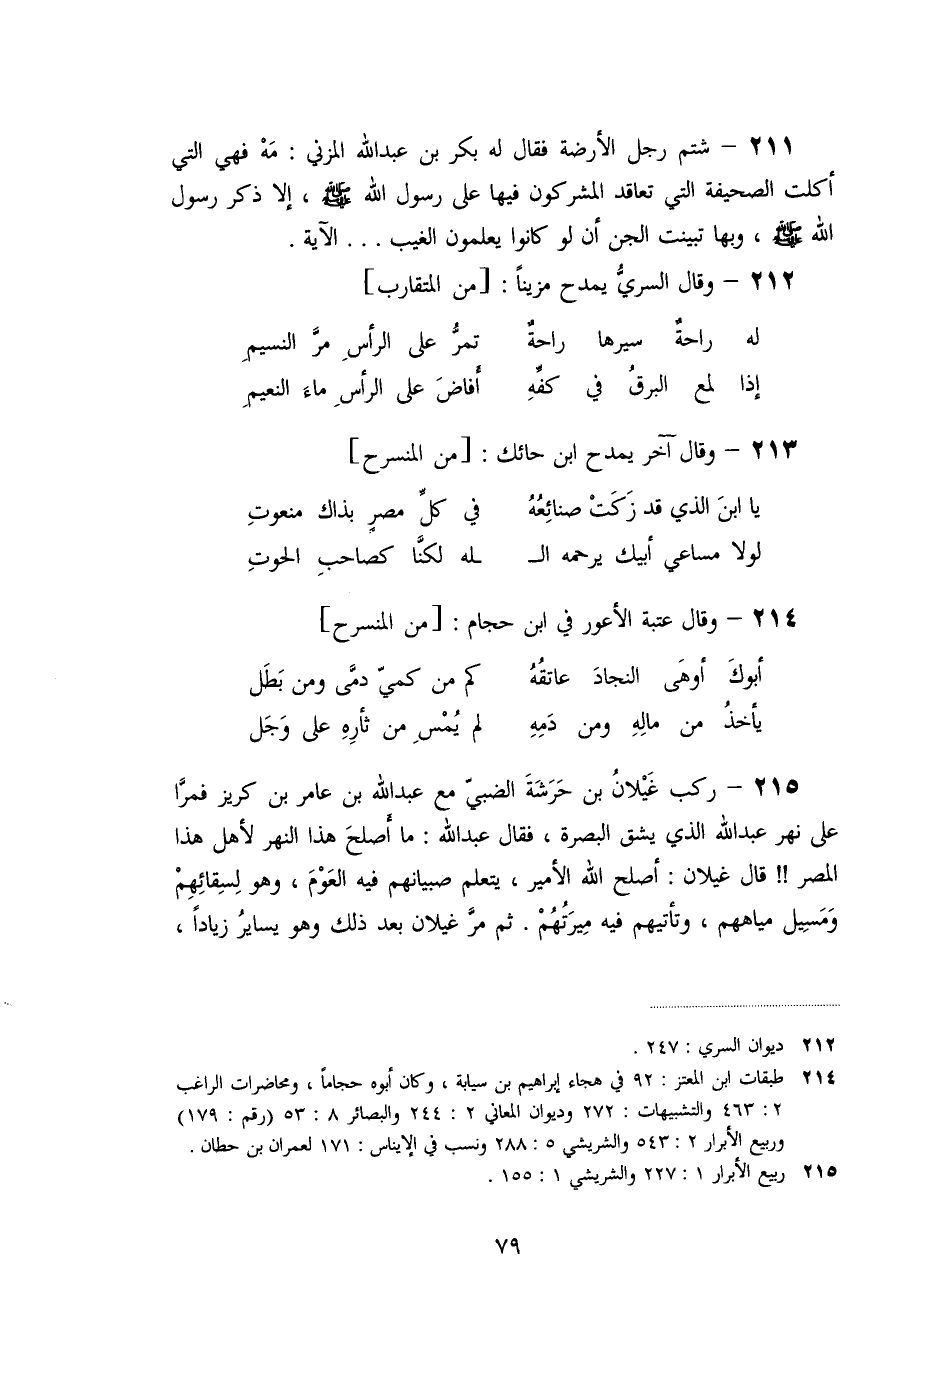 ٢١١ – شتم رجل الأرضة فقال له بكر بن عبدالله المزني : مَهْ فهي التي
أكلت الصحيفة التي تعاقد المشركون فيها على رسول الله ﷺ ، إلا ذكر رسول
الله ﷺ ، وبها تبينت الجن أن لو كانوا يعلمون الغيب . . . الآية .
٢١٢ – وقال السريُّ يمدح مزيناً : [من المتقارب]
له راحةٌ سيرها راحةٌ تمرُّ على الرأسِ مرَّ النسيمِ
إذا لمع البرقُ في كفِّهِ أَفاضَ على الرأسِ ماءَ النعيمِ
٢١٣ – وقال آخر يمدح ابن حائك : [من المنسرح]
يا ابنَ الذي قد زَكَتْ صنائِعُهُ في كلِّ مصرٍ بذاك منعوتِ
لولا مساعي أبيك يرحمه الـ ـله لكنَّا كصاحبِ الحوتِ
٢١٤ – وقال عتبة الأعور في ابن حجام : [من المنسرح]
أبوكَ أوهَى النجادَ عاتقُهُ كم من كميّ دمَّى ومن بَطَل
يأخذُ من مالِهِ ومن دَمِهِ لم يُمْسِ من ثأرِهِ على وَجَل
٢١٥ – ركب غَيْلانُ بن حَرَشَةَ الضبيّ مع عبدالله بن عامر بن كريز فمرَّا
على نهر عبدالله الذي يشق البصرة ، فقال عبدالله : ما أَصلحَ هذا النهر لأهل هذا
المصر !! قال غيلان : أصلح الله الأمير ، يتعلم صبيانهم فيه العَوْمَ ، وهو لِسِقائِهِمْ
وَمَسِيل مياههم ، وتأتيهم فيه مِيرَتُهُمْ . ثم مرَّ غيلان بعد ذلك وهو يسايرُ زياداً ،
٢١٢ ديوان السري : ٢٤٧ .
٢١٤ طبقات ابن المعتز : ٩٢ في هجاء إبراهيم بن سيابة ، وكان أبوه حجاماً ، ومحاضرات الراغب
٢ : ٤٦٣ والتشبيهات : ٢٧٢ وديوان المعاني ٢ : ٢٤٤ والبصائر ٨ : ٥٣ (رقم : ١٧٩)
وربيع الأبرار ٢ : ٥٤٣ والشريشي ٥ : ٢٨٨ ونسب في الإيناس : ١٧١ لعمران بن حطان .
٢١٥ ربيع الأبرار ١ : ٢٢٧ والشريشي ١ : ١٥٥ .
٧٩